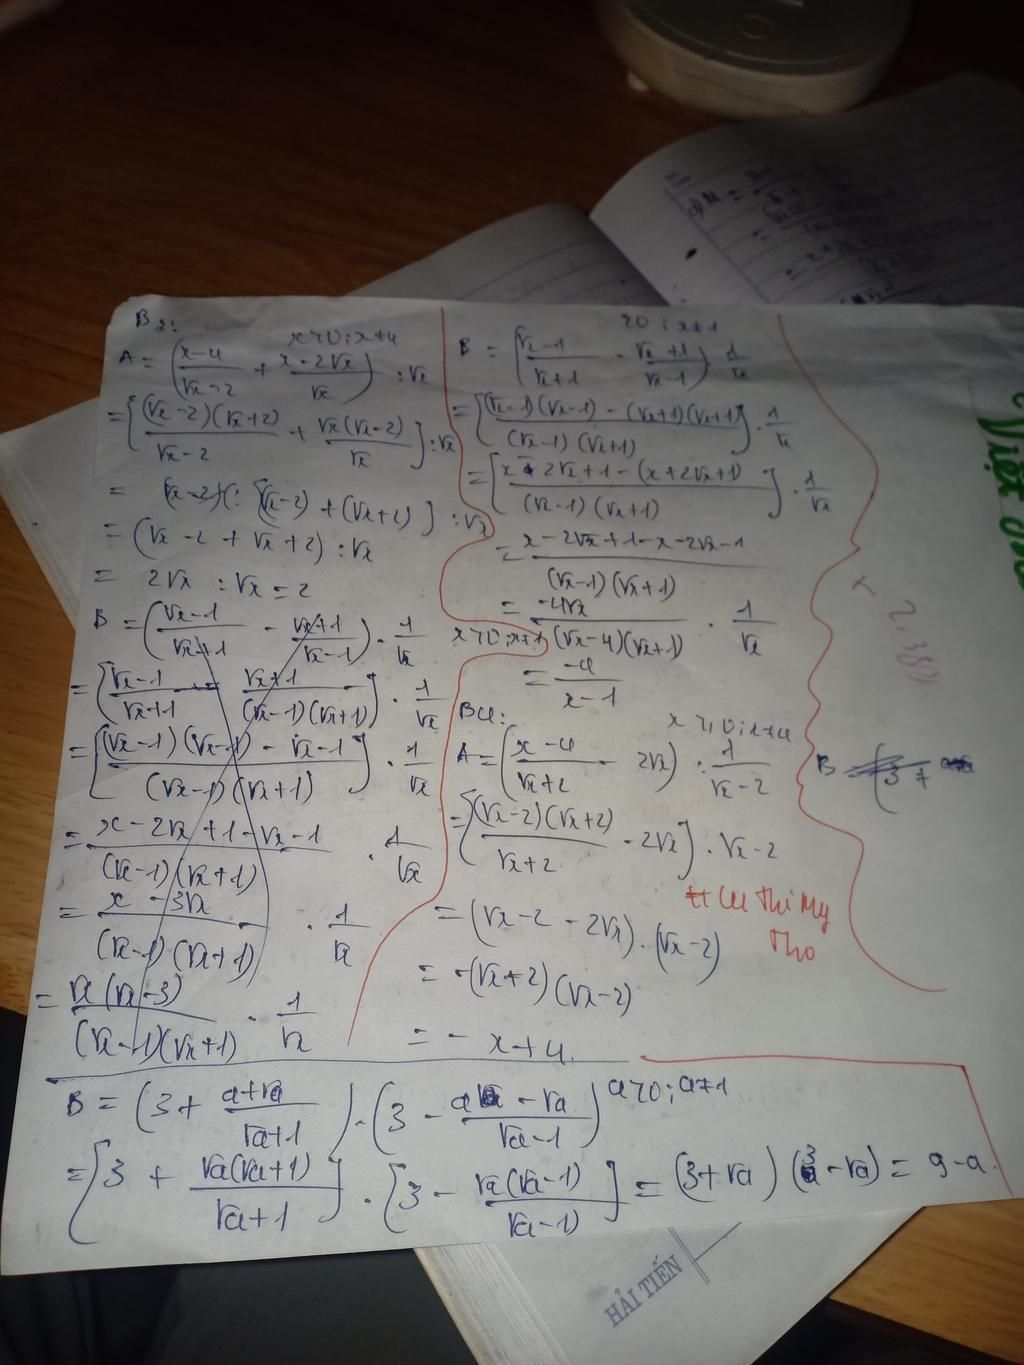 B3:
x>0; x≠4
A = (x-4/√x-2 + x-2√x/√x) : √x
= [(√x-2)(√x+2)/√x-2 + √x(√x-2)/√x] : √x
= [(√x-2) + (√x+2)] : √x
= (√x-2+√x+2) : √x
= 2√x : √x = 2
B = (√x-1/√x+1 - √x+1/√x-1) · 1/√x
= [√x-1/√x+1 - √x+1/(√x-1)(√x+1)] · 1/√x
= [(√x-1)(√x-1) - √x-1/(√x-1)(√x+1)] · 1/√x
= x-2√x+1-√x-1/(√x-1)(√x+1) · 1/√x
= x-3√x/(√x-1)(√x+1) · 1/√x
= √x(√x-3)/(√x-1)(√x+1) · 1/√x
>0; x≠1
B = (√x-1/√x+1 - √x+1/√x-1) · 1/√x
= [(√x-1)(√x-1) - (√x+1)(√x+1)/(√x-1)(√x+1)] · 1/√x
= [x-2√x+1-(x+2√x+1)/(√x-1)(√x+1)] · 1/√x
= x-2√x+1-x-2√x-1/(√x-1)(√x+1)
= -4√x/(√x-4)(√x+1) · 1/√x
x>0; x≠1
= -4/x-1
B4:
x≥0; x≠4
A = (x-4/√x+2 - 2√x) : 1/√x-2
= [(√x-2)(√x+2)/√x+2 - 2√x] · √x-2
= (√x-2-2√x) · (√x-2)
= -(√x+2)(√x-2)
= -x+4.
B (3 +
Thi My
Tho
B = (3 + a+√a/√a+1) · (3 - a-√a/√a-1) a≥0; a≠1
= [3 + √a(√a+1)/√a+1] · [3 - √a(√a-1)/√a-1] = (3+√a)(3-√a) = 9-a.
HẢI TIẾN